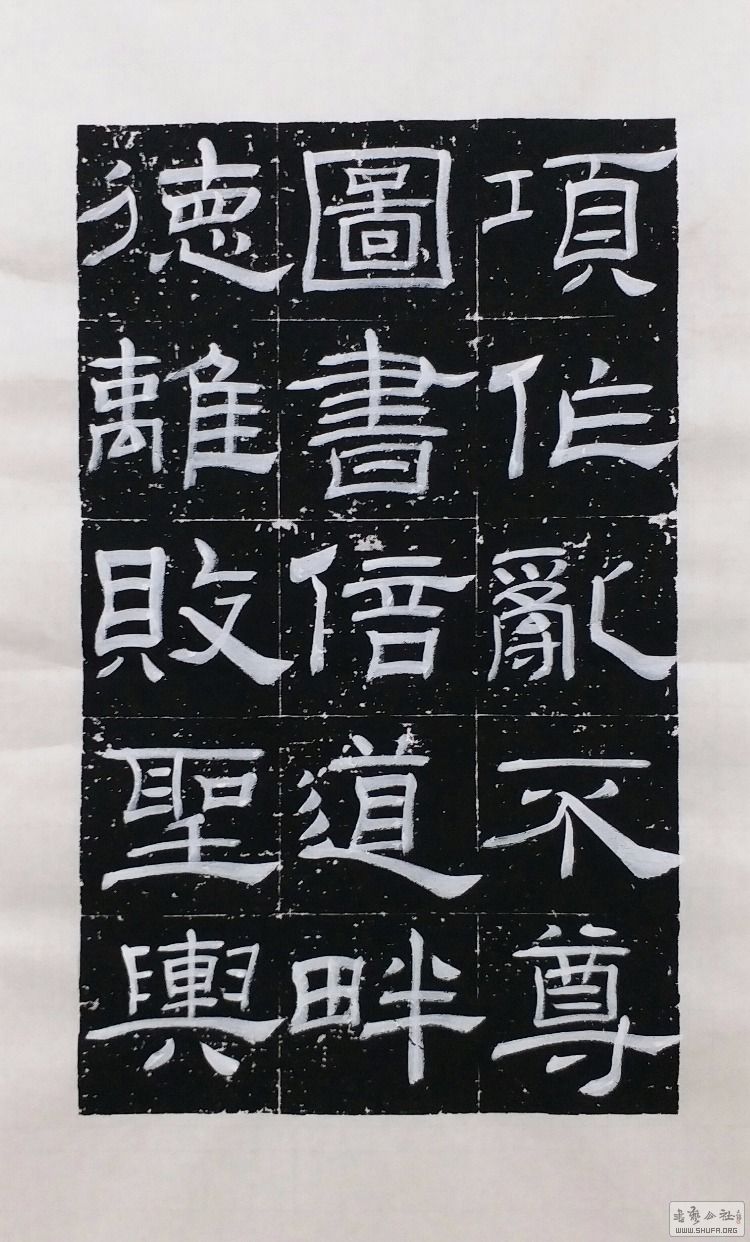 項作亂不尊
圖書倍道畔
德離敗聖輿
書藝公社
WWW.SHUFA.ORG